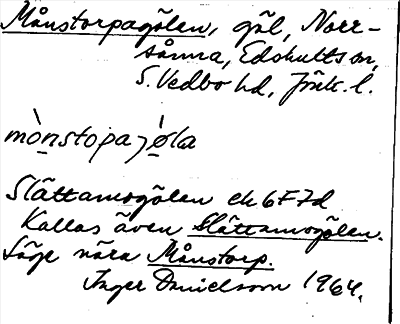 Månstorpagölen, göl, Norr-
sånna, Edshults sn,
S. Vedbo hd, Jönk. l.
mònstopaȷø̀la
Slättamogölen ek 6F7d
Kallas även Slättamogölen.
Läge nära Månstorp.
Inger Danielsson 1964.